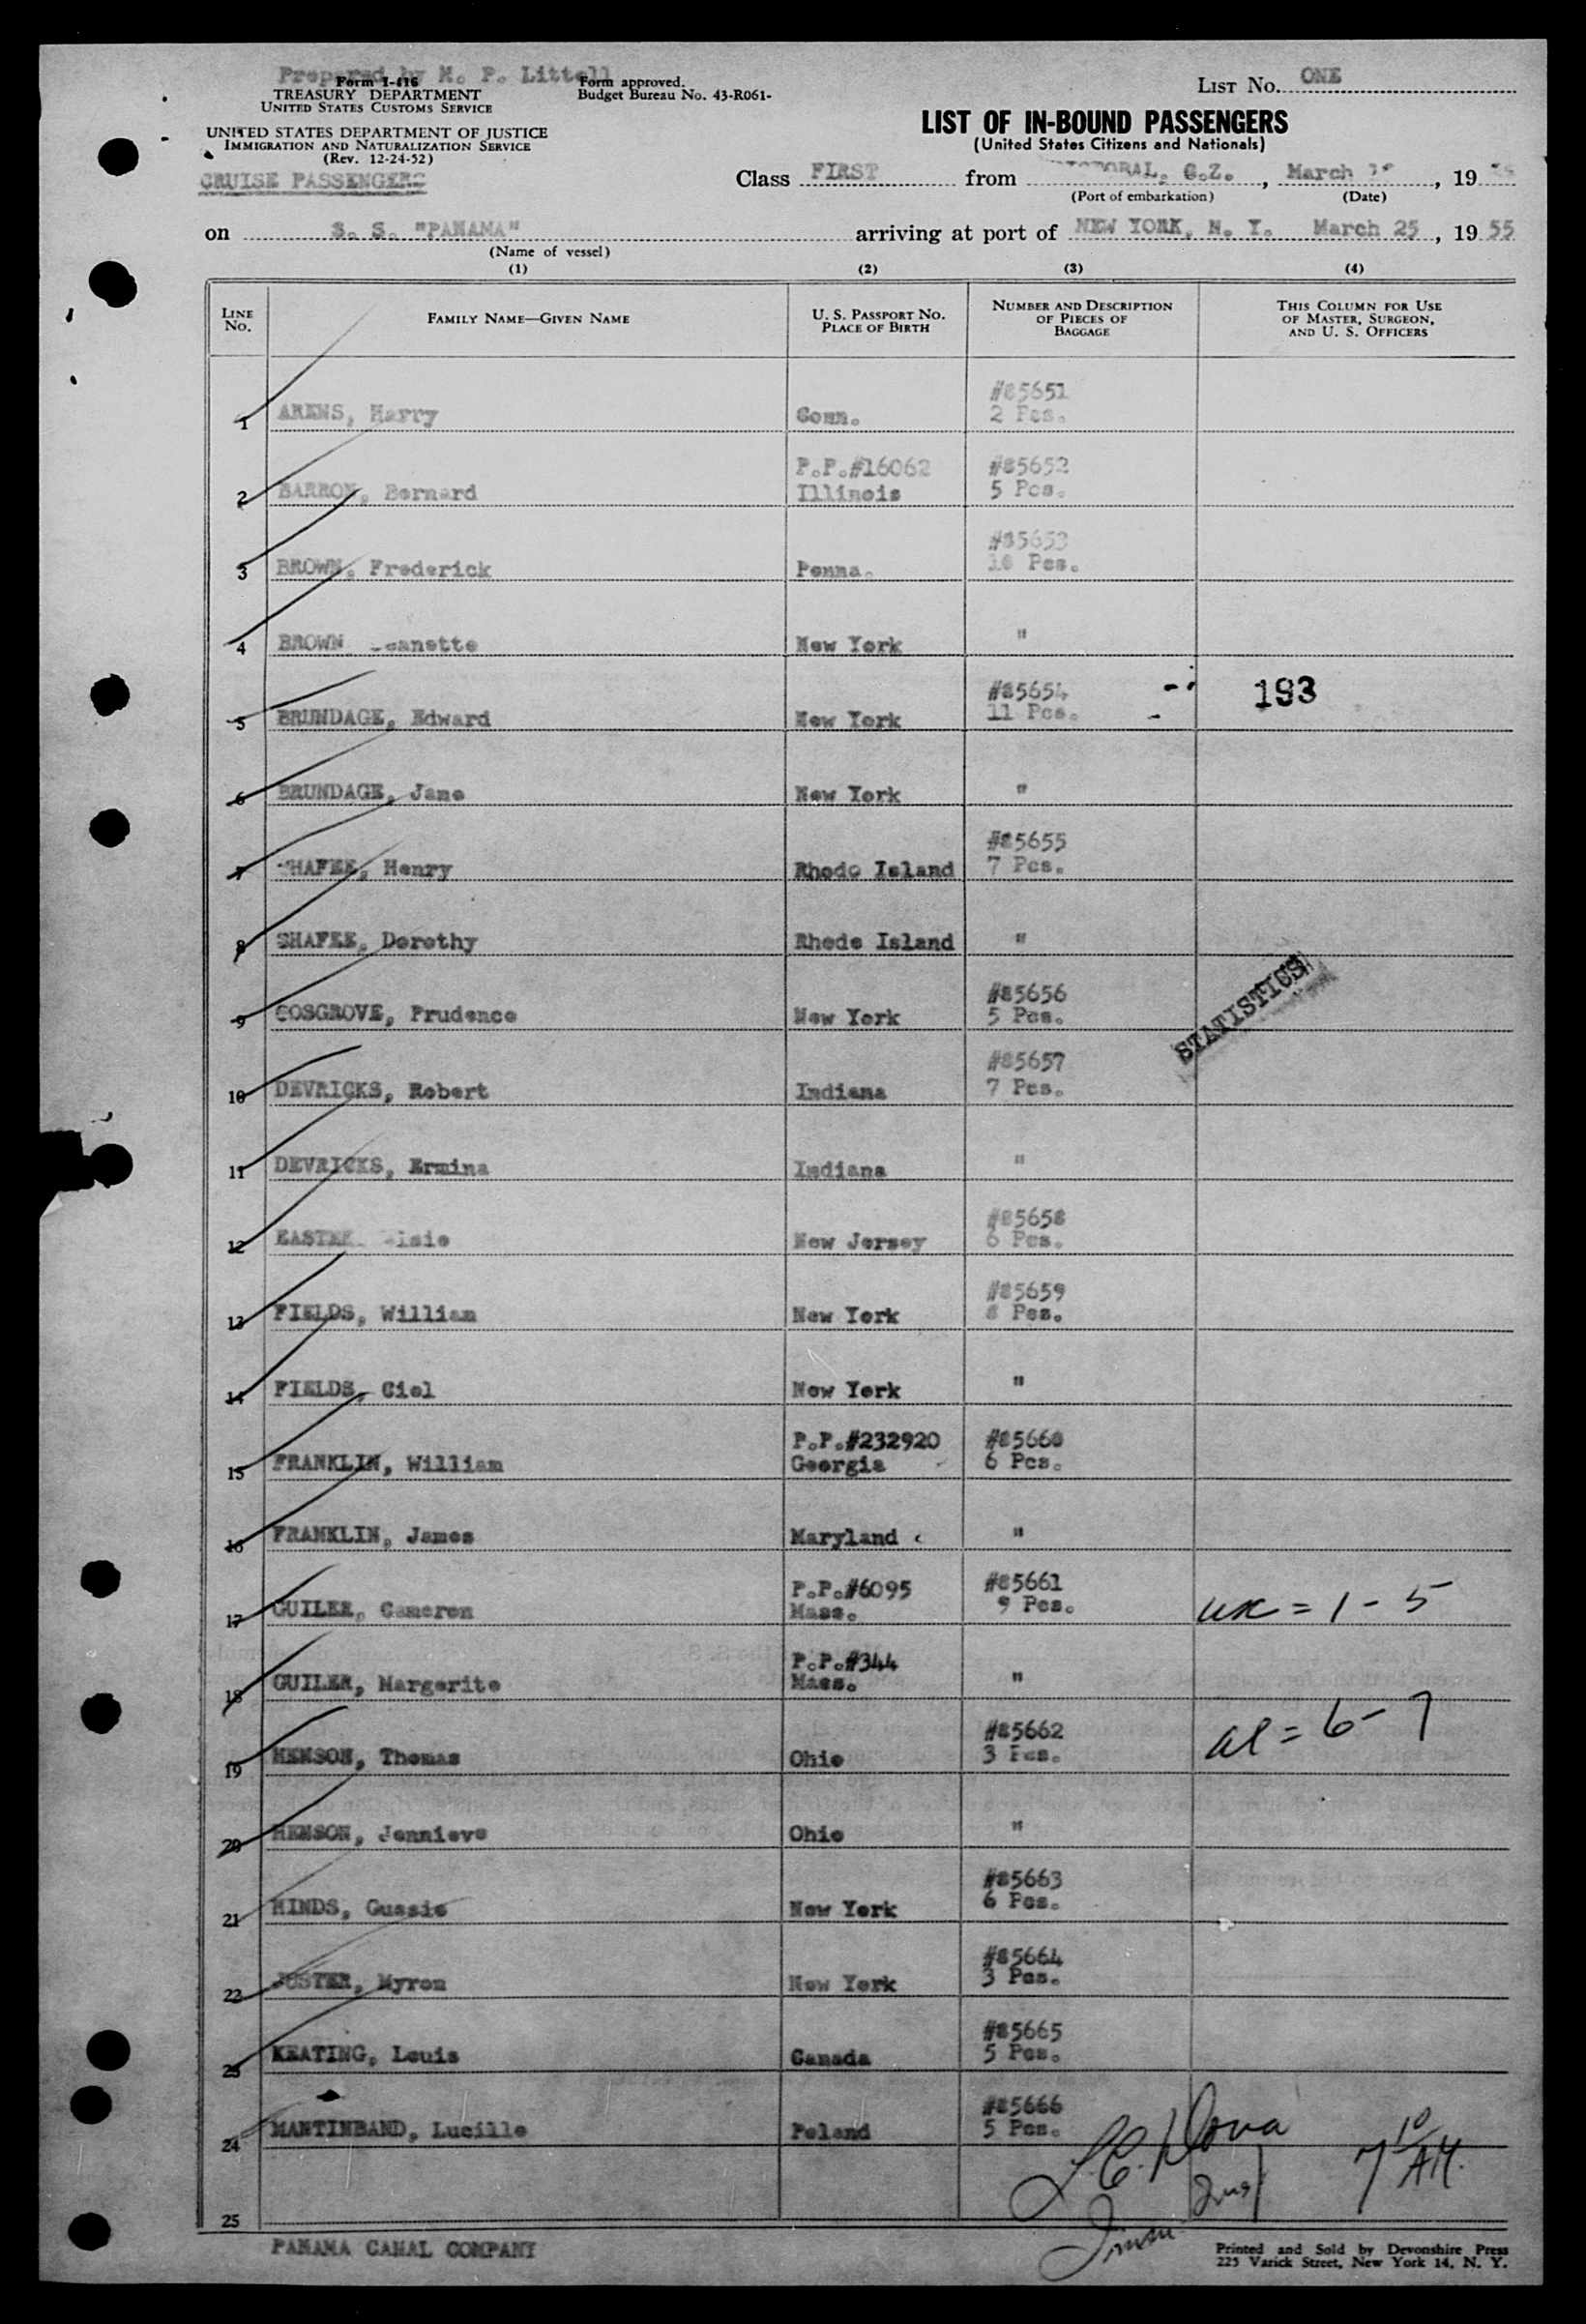 Prepared by M. P. Littell
Form I-416
TREASURY DEPARTMENT
UNITED STATES CUSTOMS SERVICE
Form approved.
Budget Bureau No. 43-R061-
LIST No. ONE
UNITED STATES DEPARTMENT OF JUSTICE
IMMIGRATION AND NATURALIZATION SERVICE
(Rev. 12-24-52)
CRUISE PASSENGERS
LIST OF IN-BOUND PASSENGERS
(United States Citizens and Nationals)
Class FIRST from C.Z., March , 19
(Port of embarkation) (Date)
on S. S. "PANAMA" arriving at port of NEW YORK, N. Y. March 25, 19 55
(Name of vessel)
(1) (2) (3) (4)
LINE No. FAMILY NAME—GIVEN NAME U. S. PASSPORT No. PLACE OF BIRTH NUMBER AND DESCRIPTION OF PIECES OF BAGGAGE THIS COLUMN FOR USE OF MASTER, SURGEON, AND U. S. OFFICERS
1 ARENS, Harry Conn. #85651 2 Pcs.
2 BARRON, Bernard P.P.#16062 Illinois #85652 5 Pcs.
3 BROWN, Frederick Penna. #85653 10 Pcs.
4 BROWN New York "
5 BRUNDAGE, Edward New York #85654 11 Pcs. 193
6 BRUNDAGE, Jane New York "
7 Henry Rhode Island #85655 7 Pcs.
8 SHAFEE, Dorothy Rhode Island "
9 COSGROVE, Prudence New York #85656 5 Pcs.
STATISTICS
10 DEVRICKS, Robert Indiana #85657 7 Pcs.
11 DEVRICKS, Ermina Indiana "
12 New Jersey #85658 6 Pcs.
13 FIELDS, William New York #85659 8 Pcs.
14 FIELDS, Ciel New York "
15 FRANKLIN, William P.P.#232920 Georgia #85660 6 Pcs.
16 FRANKLIN, James Maryland "
17 GUILER, Cameron P.P.#6095 Mass. #85661 9 Pcs. = 1 - 5
18 GUILER, Margerite P.P.#344 Mass. "
19 HENSON, Thomas Ohio #85662 3 Pcs. al = 6 - 7
20 HENSON, Jennieve Ohio "
21 HINDS, Gussie New York #85663 6 Pcs.
22 JUSTER, Myron New York #85664 3 Pcs.
23 KEATING, Louis Canada #85665 5 Pcs.
24 MARTINBAND, Lucille Poland #85666 5 Pcs.
25
7 10 AM.
PANAMA CANAL COMPANY
Printed and Sold by Devonshire Press
225 Varick Street, New York 14, N. Y.